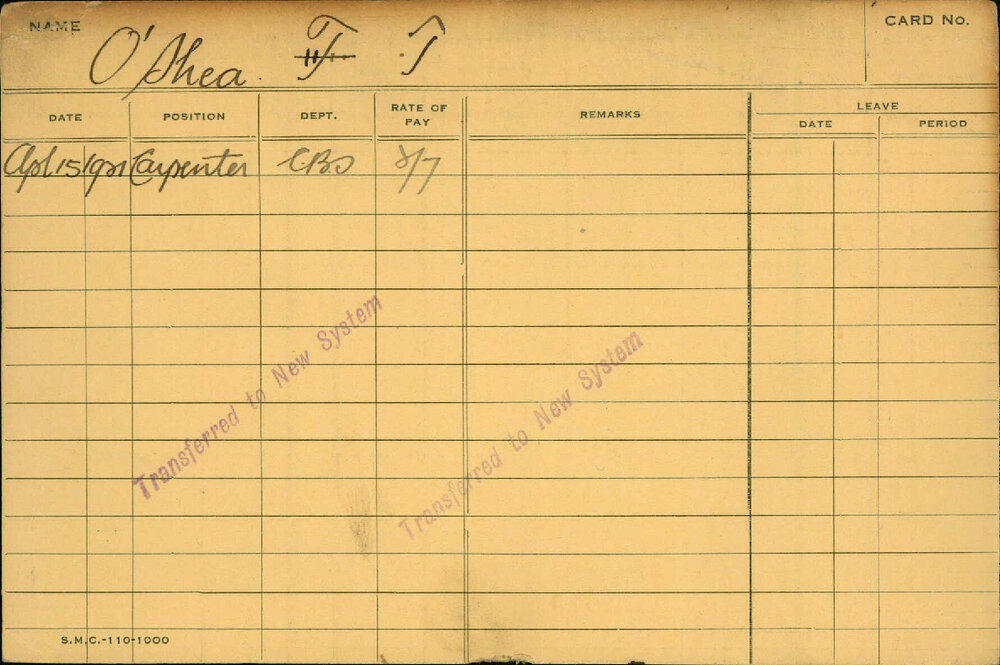 NAME
O'Shea. F T
CARD No.
DATE POSITION DEPT. RATE OF PAY REMARKS LEAVE
DATE PERIOD
Apl 15 1921 Carpenter C.B.S 2/7
Transferred to New System
Transferred to New System
S.M.C.-110-1000